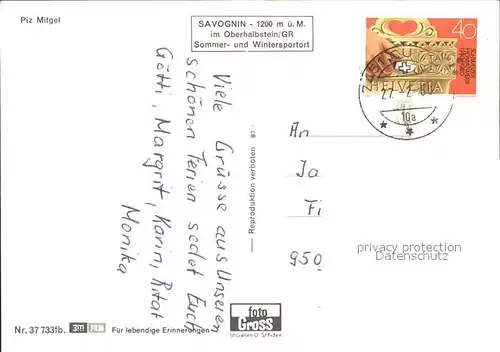 Piz Mitgel
SAVOGNIN - 1200 m ü. M.
im Oberhalbstein/GR
Sommer- und Wintersportort
40
HELVETIA
27. 2. 80
10a
Viele Grüsse aus Unseren
schönen Ferien sedet Euch
Götti, Margrit, Karin, Ritat
Monika
Reproduktion verboten 87
An
Ja
Fi
950
privacy protection
Watermark
foto
Gross
St.Gallen O. St.Fiden
Nr. 37 733fb.
Für lebendige Erinnerungen